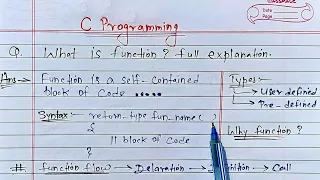 CLASSMATE
Date
Page
C Programming
Q. What is function? full explanation.
Ans→ Function is a self-contained block of Code .....
Syntax:- return-type fun_name( )
{
// block of Code
}
Types:-
→ User defined
→ Pre-defined
Why function?
# function flow → Delaration → Definition → Call